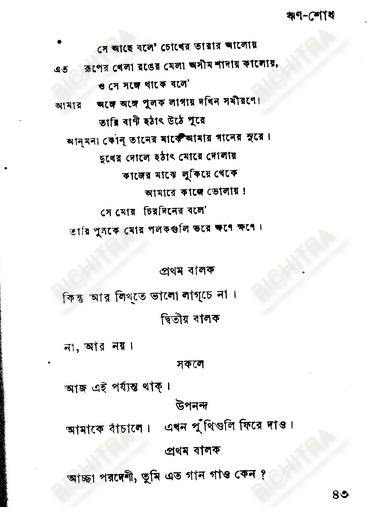 ঋণ-শোধ
সে আছে বলে' চোখের তারার আলোয়
এত রূপের খেলা রঙের মেলা অসীম শাদায় কালোয়,
ও সে সঙ্গে থাকে বলে'
আমার অঙ্গে অঙ্গে পুলক লাগায় দখিন সমীরণে।
তারি বাণী হঠাৎ উঠে পূরে
আন্‌মনা কোন্ তানের মাঝে আমার গানের সুরে।
দুখের দোলে হঠাৎ মোরে দোলায়
কাজের মাঝে লুকিয়ে থেকে
আমারে কাজে ভোলায়!
সে মোর চিরদিনের বলে'
তারি পুলকে মোর পলকগুলি ভরে ক্ষণে ক্ষণে।
প্রথম বালক
কিন্তু আর লিখ্‌তে ভালো লাগ্‌চে না।
দ্বিতীয় বালক
না, আর নয়।
সকলে
আজ এই পর্য্যন্ত থাক্।
উপনন্দ
আমাকে বাঁচালে। এখন পুঁথিগুলি ফিরে দাও।
প্রথম বালক
আচ্ছা পরদেশী, তুমি এত গান গাও কেন?
৪৩
BICHITRA
BICHITRA
BICHITRA
BICHITRA
BICHITRA
BICHITRA